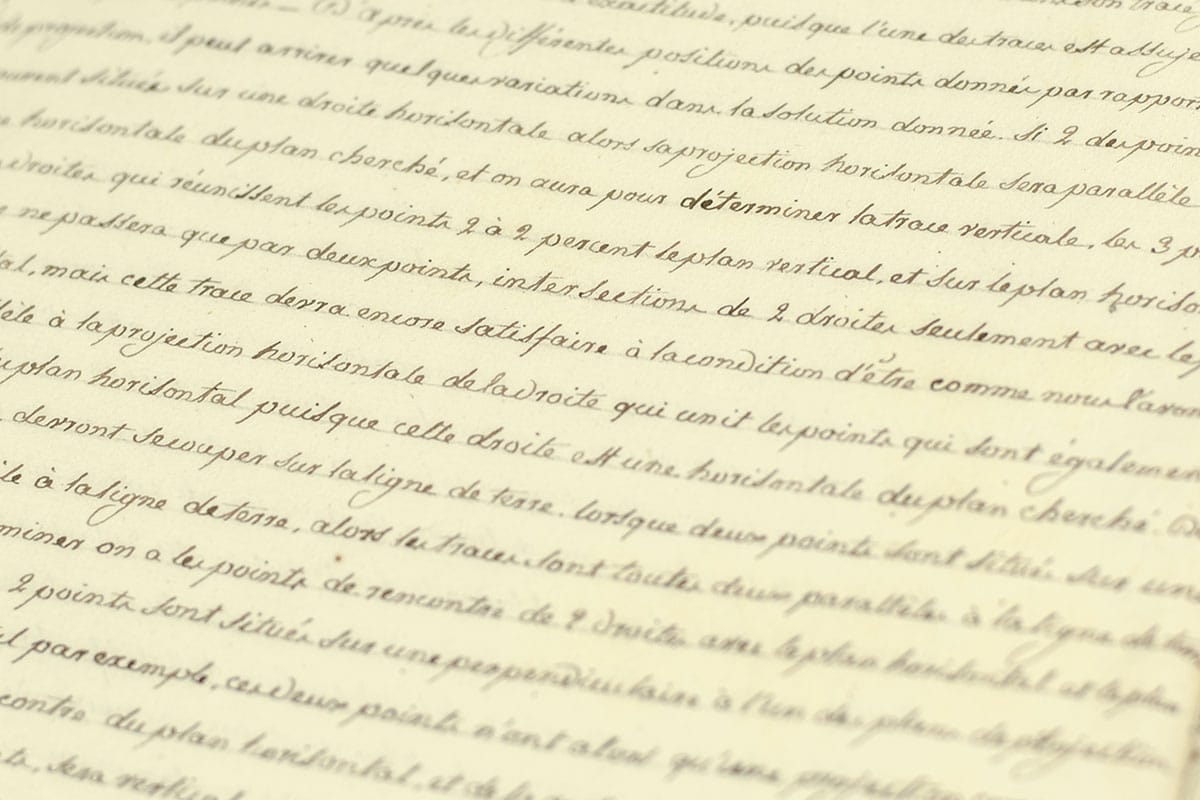 D'après les différentes positions des points donnés par rappor
exactitude, puisque l'une des traces est assuje
de projection, il peut arriver quelques variations dans la solution donnée. si 2 des poin
situés sur une droite horisontale alors sa projection horisontale sera parallèle
horisontale du plan cherché, et on aura pour déterminer la trace verticale, les 3 p
droites qui réunissent les points 2 à 2 percent le plan vertical, et sur le plan horiso
ne passera que par deux points, intersections de 2 droites seulement avec le p
al, mais cette trace devra encore satisfaire à la condition d'être comme nous l'avon
lèle à la projection horisontale de la droite qui unit les points qui sont égalemen
u plan horisontal puisque cette droite est une horisontale du plan cherché.
devront se couper sur la ligne de terre. lorsque deux points sont situés sur un
le à la ligne de terre, alors les traces sont toutes deux parallèles à la ligne de ter
miner on a les points de rencontre de 2 droites avec le plan horisontal et le plan
2 points sont situés sur une perpendiculaire à l'un des plans de projection
l par exemple, ces deux points n'ont alors qu'une projection
contre du plan horisontal, et de
ts, sera vertical